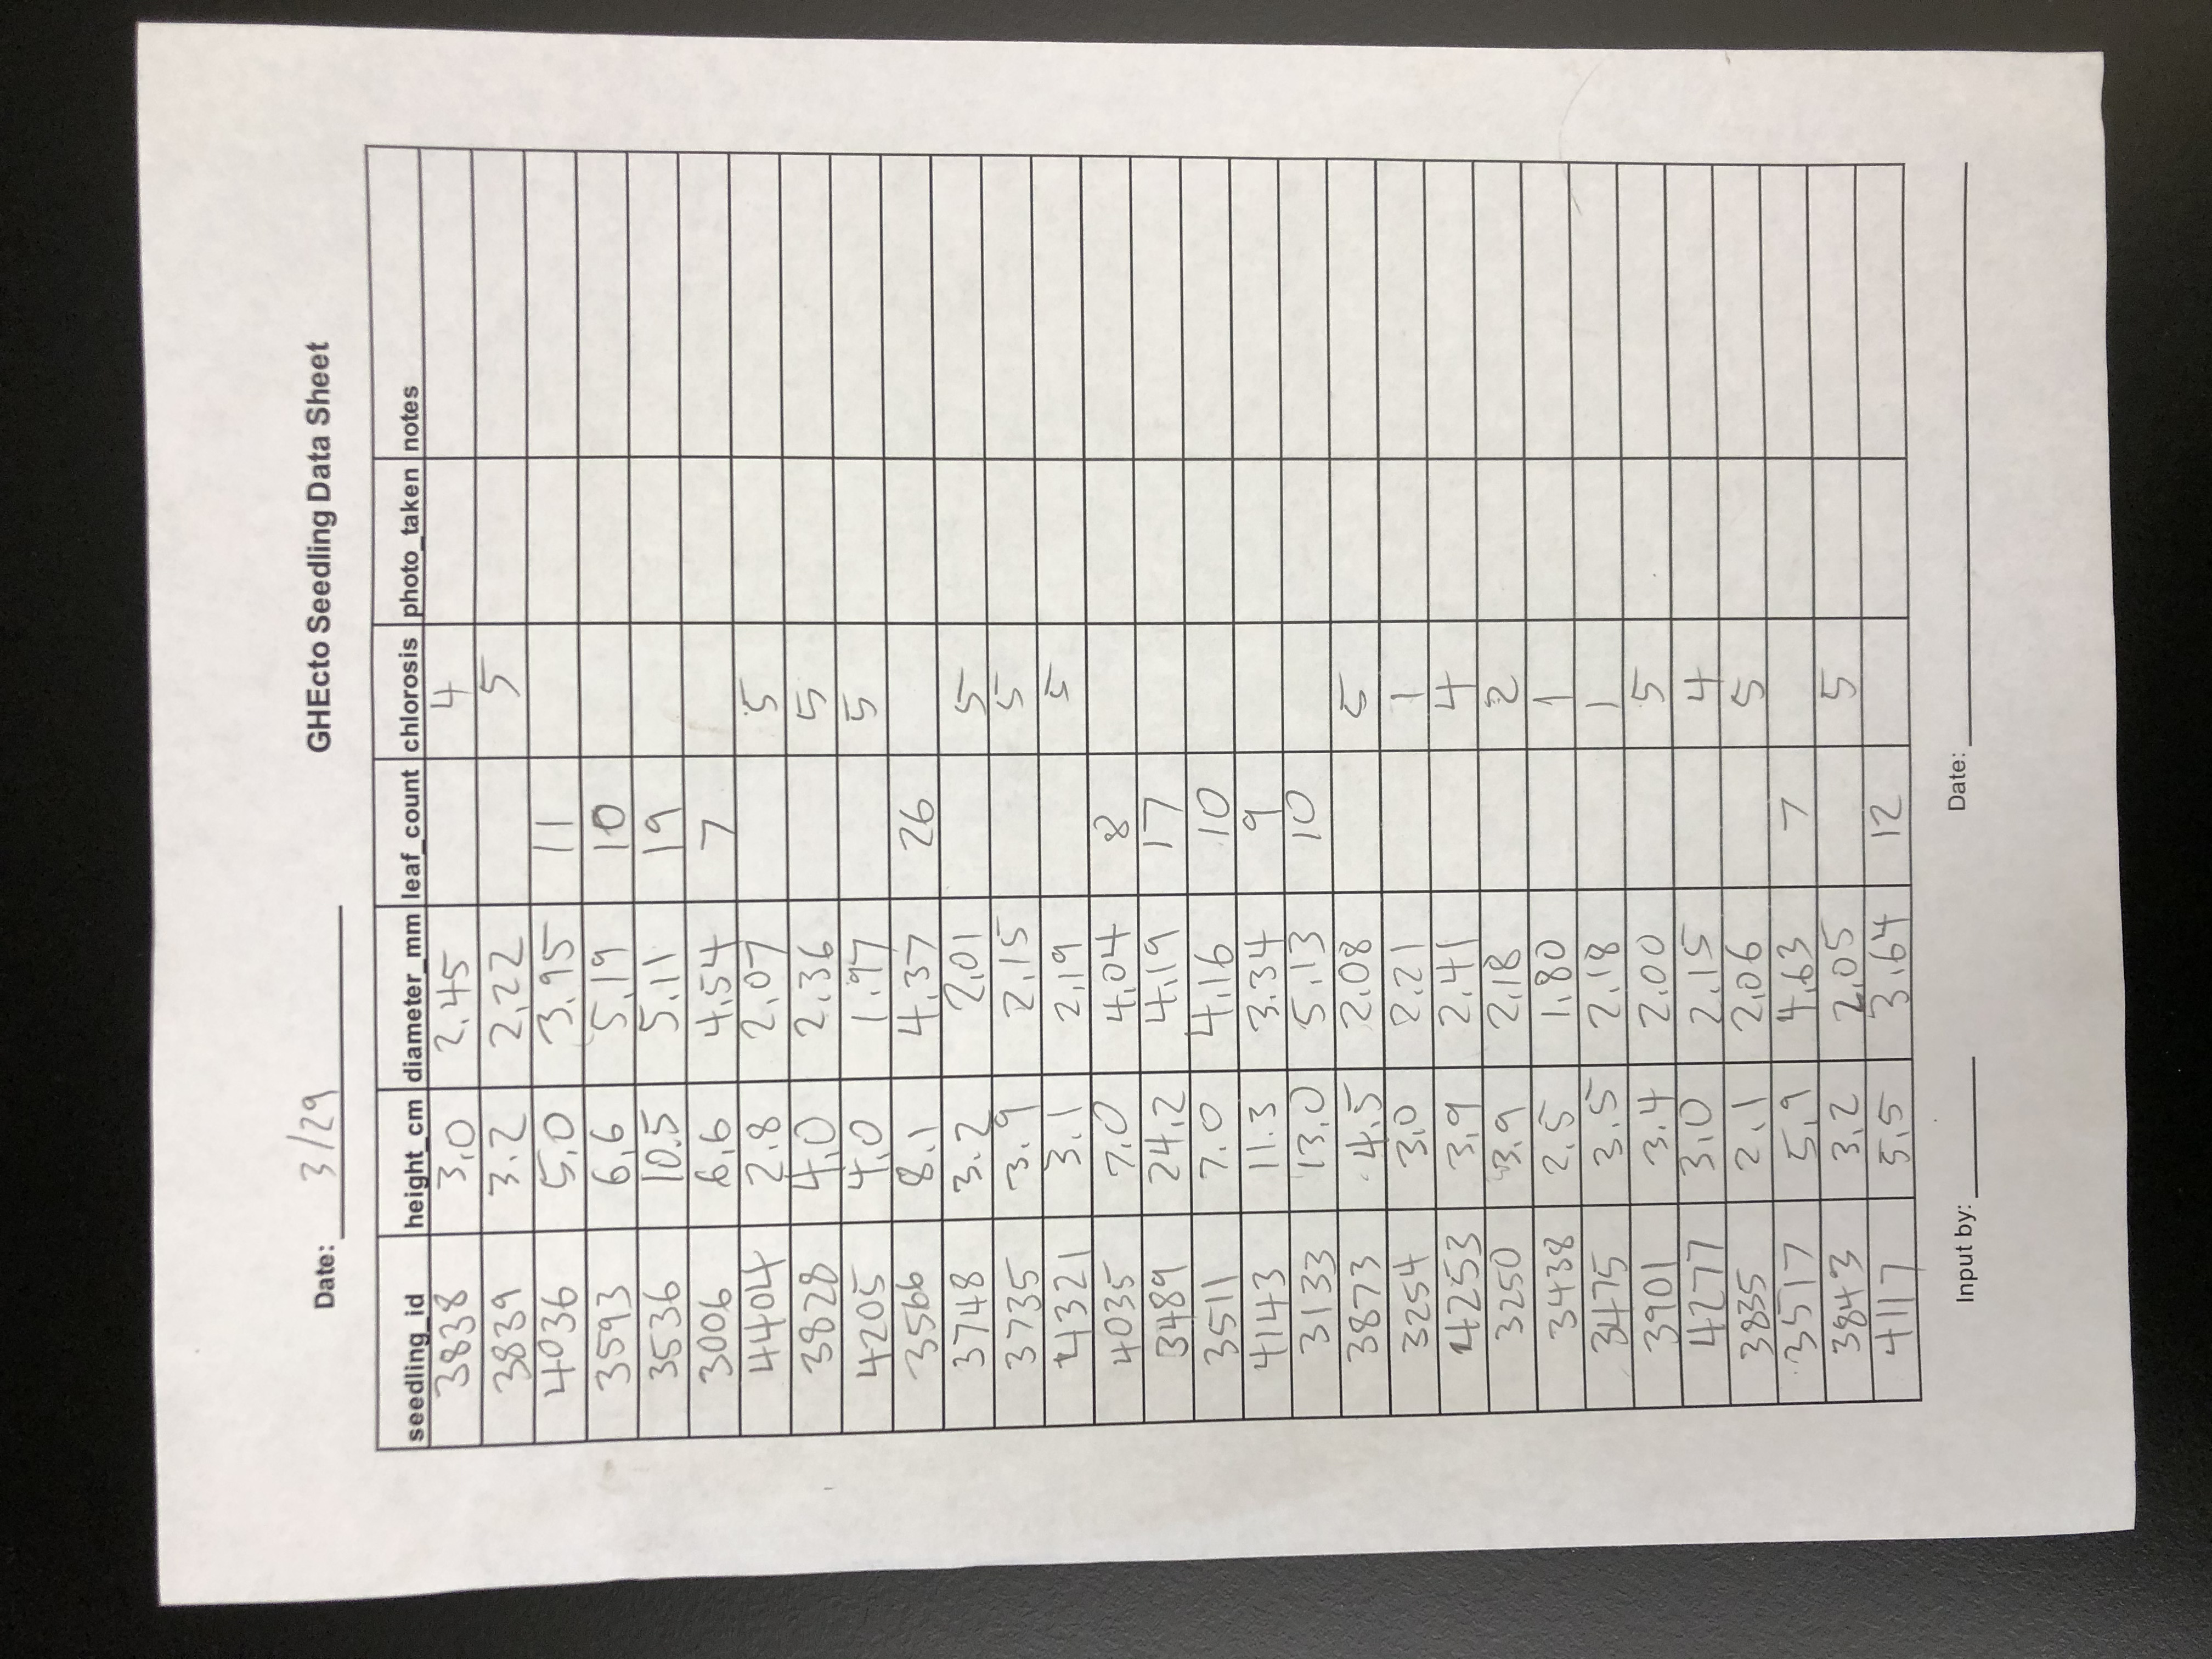 Date: 3/29 GHEcto Seedling Data Sheet
seedling_id height_cm diameter_mm leaf_count chlorosis photo_taken notes
3838 3.0 2.45 4
3839 3.2 2.22 5
4036 5.0 3.95 11
3593 6.6 5.19 10
3536 10.5 5.11 19
3006 6.6 4.54 7
4404 2.8 2.07 5
3828 4.0 2.36 5
4205 4.0 1.97 5
3566 8.1 4.37 26
3748 3.2 2.01 5
3735 3.9 2.15 5
4321 3.1 2.19 5
4035 7.0 4.04 8
3489 24.2 4.19 17
3511 7.0 4.16 10
4143 11.3 3.34 9
3133 13.0 5.13 10
3873 4.5 2.08 5
3254 3.0 2.21 1
4253 3.9 2.41 4
3250 3.9 2.18 2
3438 2.5 1.80 1
3475 3.5 2.18 1
3901 3.4 2.00 5
4277 3.0 2.15 4
3835 2.1 2.06 5
3517 5.9 4.63 7
3843 3.2 2.05 5
4117 5.5 3.64 12
Input by: Date: